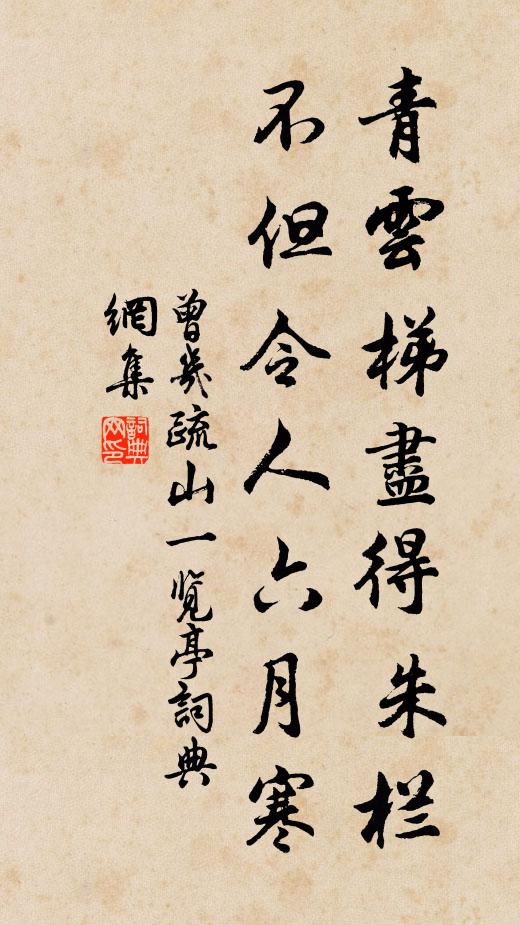 青雲梯盡得朱栏
不但令人六月寒
曾幾疏山一覽亭詞典
網集
詞典網印